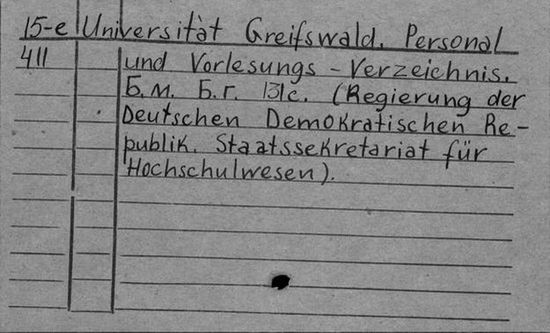 15-e Universität Greifswald. Personal
411 und Vorlesungs-Verzeichnis.
Б.м. Б.г. 131с. (Regierung der
Deutschen Demokratischen Re-
publik. Staatssekretariat für
Hochschulwesen).